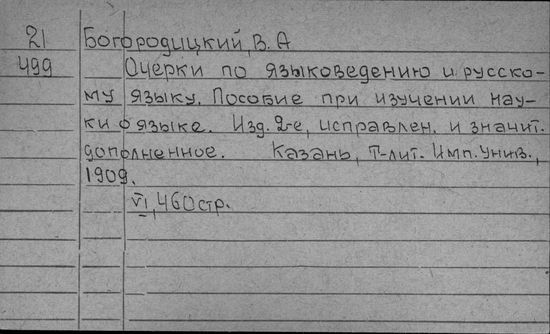 21 Богородицкий, В. А
499 Очерки по языковедению и русско-
му языку. Пособие при изучении нау-
ки о языке. Изд. 2-е, исправлен. и значит.
дополненное. Казань, Т-лит. Имп. Унив.,
1909.
VI, 460 стр.